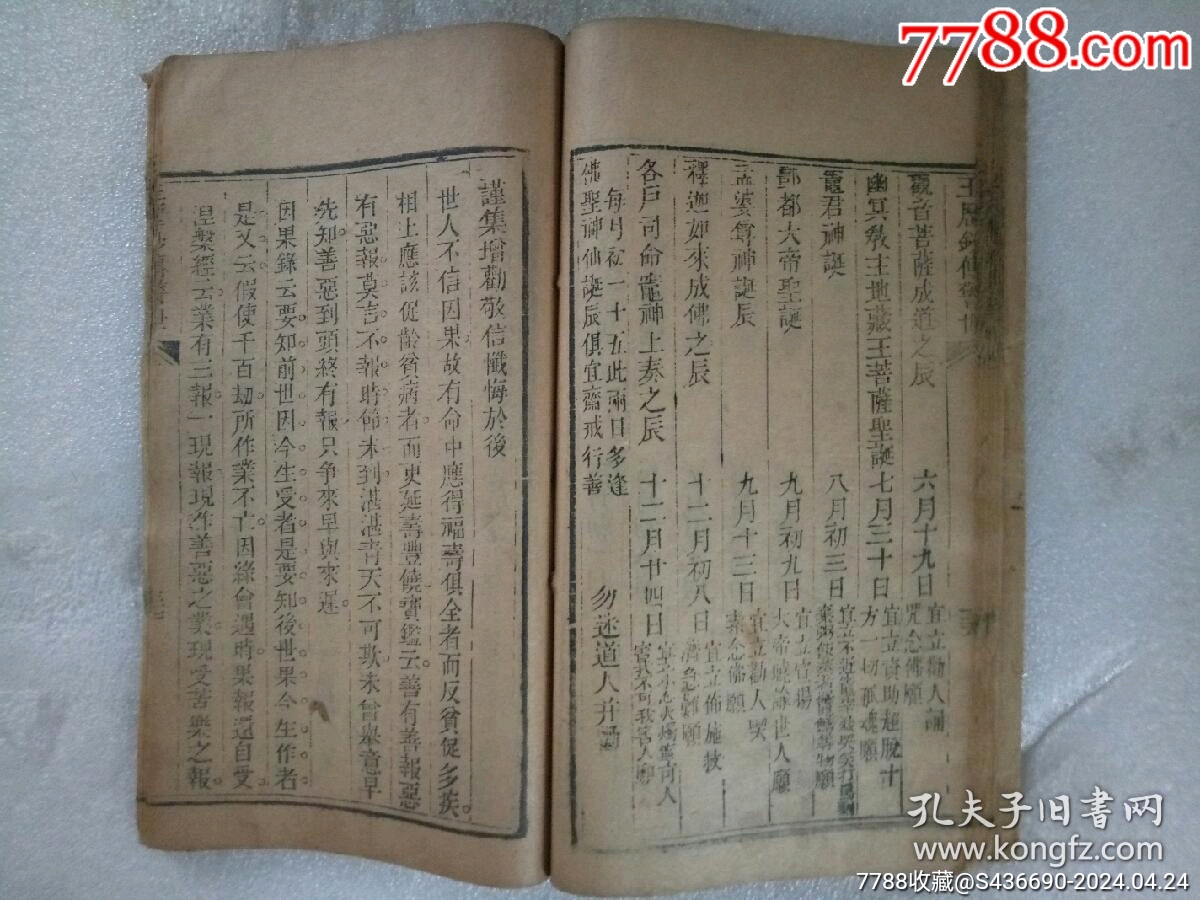 7788.com
觀音菩薩成道之辰 六月十九日 宜立勸人誦咒念佛願
幽冥教主地藏王菩薩聖誕 七月三十日 宜立資助超脫十方一切孤魂願
竈君神誕 八月初三日
酆都大帝聖誕 九月初九日 宜立宣揚大帝號誥世人願
孟婆尊神誕辰 九月十三日 宜立勸人喫素念佛願
釋迦如來成佛之辰 十二月初八日 宜立佈施救濟急難願
各戶司命竈神上奏之辰 十二月廿四日
每月初一十五此兩日多逢
佛聖神仙誕辰俱宜齋戒行善 勿迷道人幷
謹集增勸敬信懺悔於後
世人不信因果故有命中應得福壽俱全者而反貧促多疾。
相上應該促齡貧病者而更延壽豐饒寶鑑云善有善報惡
有惡報莫言不報時節未到湛湛青天不可欺未曾舉意早
先知善惡到頭終有報只爭來早與來遲。
因果錄云要知前世因今生受者是要知後世果今生作者
是又云假使千百劫所作業不亡因緣會遇時果報還自受
涅槃經云業有三報一現報現作善惡之業現受苦樂之報
孔夫子旧书网
www.kongfz.com
7788收藏@S436690-2024.04.24